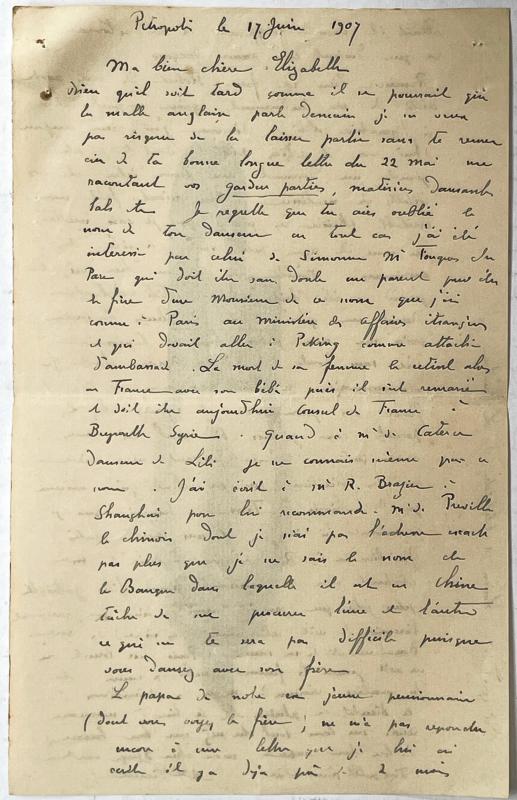 Petropolis le 17 Juin 1907
Ma bien chère Elizabeth
Bien qu'il soit tard comme il se pourrait que
la malle anglaise parte demain je ne veux
pas risquer de la laisser partir sans te remer
cier de ta bonne longue lettre du 22 Mai me
racontant vos garden parties, matinées dansantes
bals etc Je regrette que tu aies oublié le
nom de ton danseur en tout cas j'ai été
intéressé par celui de Simonne Mr Fouques du
Parc qui doit être sans doute un parent peut être
le frère d'un Monsieur de ce nom que j'ai
connu à Paris au Ministère des affaires étrangères
et qui devait aller à Peking comme attaché
d'ambassade. La mort de sa femme le retint alors
en France avec son bébé puis il s'est remarié
et doit être aujourd'hui Consul de France à
Beyrouth Syrie. Quand à Mr de
danseur de Lili je ne connais même pas ce
nom. J'ai écrit à Mr R. à
Shanghai pour lui recommander Mr de Préville
le chinois dont je n'ai pas l'adresse exacte
pas plus que je ne sais le nom de
la Banque dans laquelle il est en Chine
tâche de me procurer l'une et l'autre
ce qui ne te sera pas difficile puisque
vous dansez avec son frère
Le papa de notre jeune pensionnaire
(dont vous voyez le frère) ne m'a pas répondu
encore à une lettre que je lui ai
écrite il y a déjà près de 2 mois